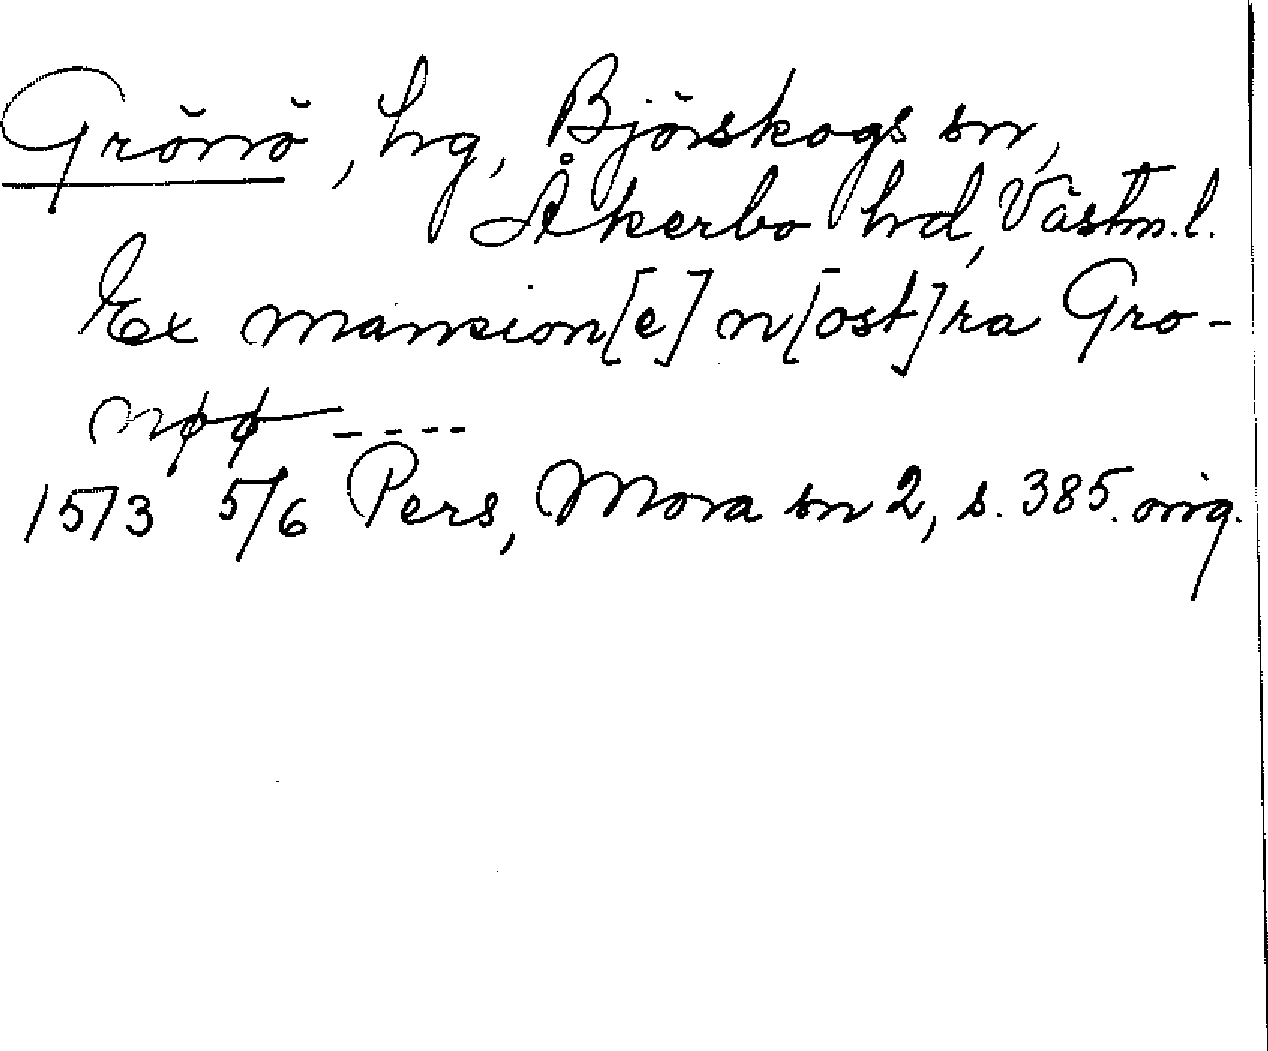 Grönö, hg, Björskogs sn,
Åkerbo hd, Västm.l.
Ex mansion[e] n[ost]ra Gro-
nøø ----
1573 5/6 Pers, Mora sn 2, s. 385. orig.